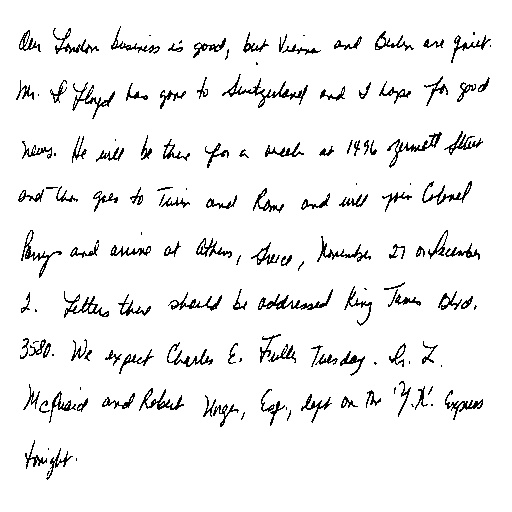 Our London business is good, but Vienna and Berlin are quiet.
Mr. D Lloyd has gone to Switzerland and I hope for good
news. He will be there for a week at 1496 Zermott Street
and then goes to Turin and Rome and will join Colonel
Parry and arrive at Athens, Greece, November 27 or December
2. Letters there should be addressed King James Blvd.
3580. We expect Charles E. Fuller Tuesday. Dr. L.
McQuaid and Robert Unger, Esq., left on the 'Y.X'. Express
tonight.